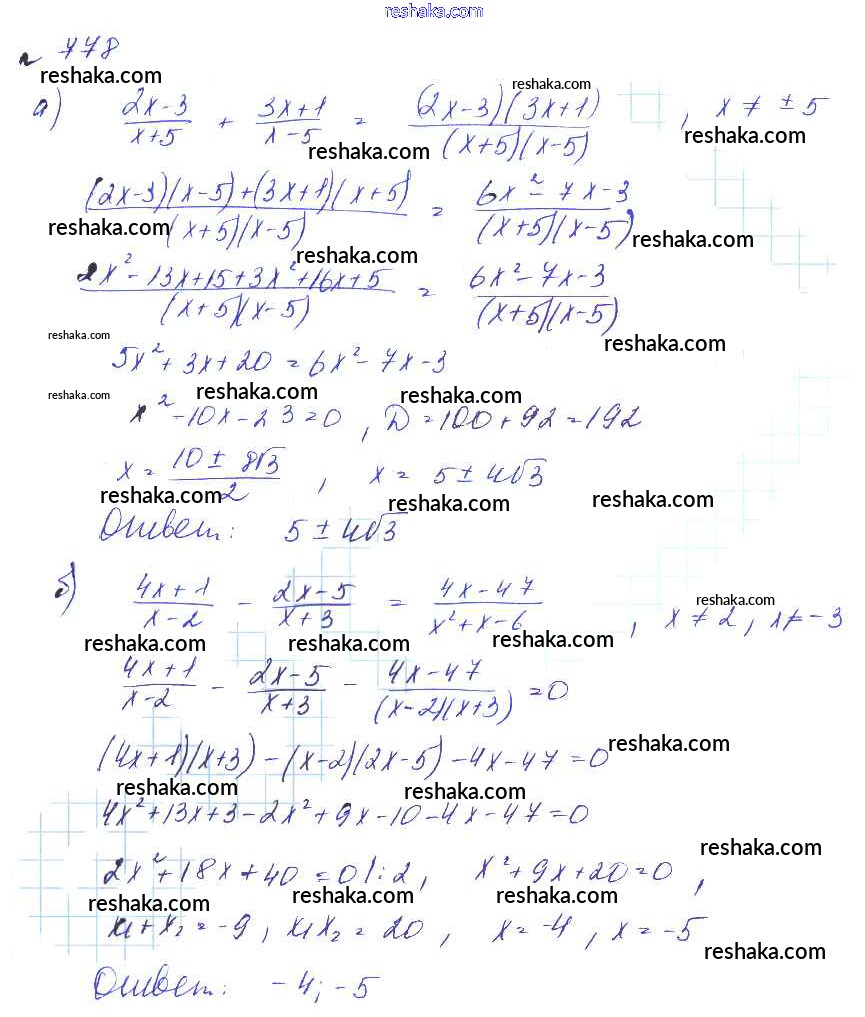 www.reshaka.com
№ 778
reshaka.com
reshaka.com
а) (2x-3)/(x+5) + (3x+1)/(x-5) = ((2x-3)(3x+1))/((x+5)(x-5)), x ≠ ±5
reshaka.com
reshaka.com
((2x-3)(x-5)+(3x+1)(x+5))/((x+5)(x-5)) = (6x²-7x-3)/((x+5)(x-5))
reshaka.com
reshaka.com
reshaka.com
(2x²-13x+15+3x²+16x+5)/((x+5)(x-5)) = (6x²-7x-3)/((x+5)(x-5))
reshaka.com
reshaka.com
5x²+3x+20=6x²-7x-3
reshaka.com
reshaka.com
reshaka.com
x²-10x-23=0, D=100+92=192
x = (10±8√3)/2, x = 5±4√3
reshaka.com
reshaka.com
reshaka.com
Ответ: 5±4√3
б) (4x+1)/(x-2) - (2x-5)/(x+3) = (4x-47)/(x²+x-6), x≠2, x≠-3
reshaka.com
reshaka.com
reshaka.com
reshaka.com
(4x+1)/(x-2) - (2x-5)/(x+3) - (4x-47)/((x-2)(x+3)) =0
(4x+1)(x+3)-(x-2)(2x-5)-4x-47=0
reshaka.com
reshaka.com
reshaka.com
4x²+13x+3-2x²+9x-10-4x-47=0
reshaka.com
2x²+18x+40=0 |:2, x²+9x+20=0,
reshaka.com
reshaka.com
reshaka.com
x₁+x₂=-9, x₁x₂=20, x=-4, x=-5
reshaka.com
Ответ: -4; -5